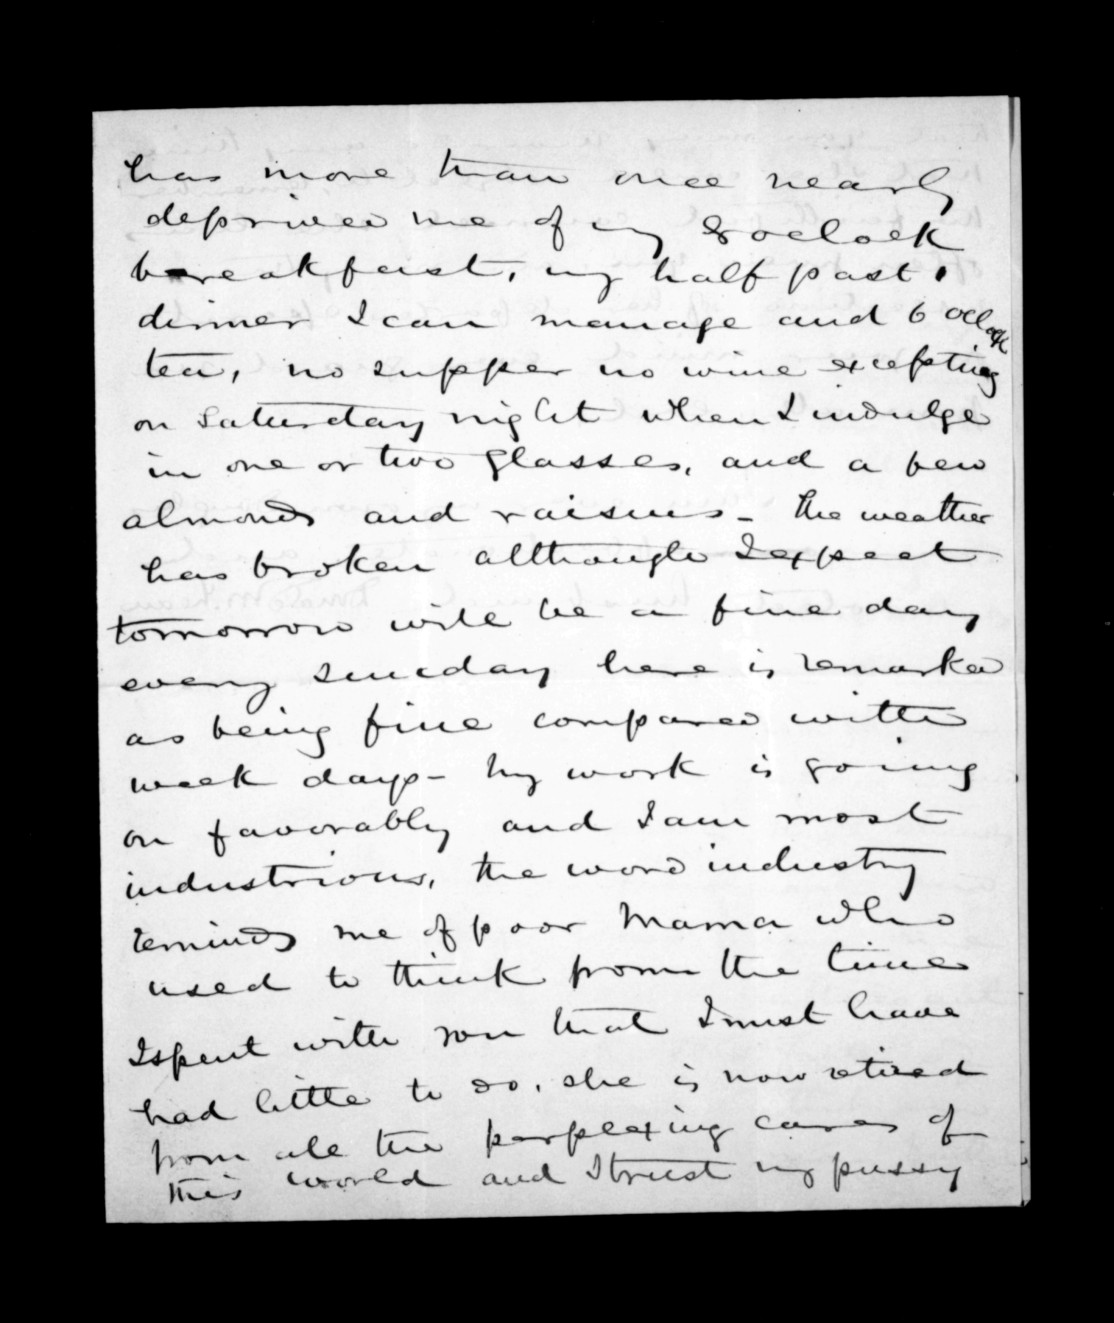 has more than once nearly
deprived me of my 8 oclock
breakfast, my half past 1
dinner I can manage and 6 oclock
tea, no supper no wine excepting
on Saturday night when I indulge
in one or two glasses, and a few
almonds and raisins - the weather
has broken although I expect
tomorrow will be a fine day
every sunday here is remarked
as being fine compared with
week days - my work is going
on favorably and I am most
industrious, the word industry
reminds me of poor Mama who
used to think from the time
I spent with you that I must have
had little to do, she is now retired
from all the perplexing cares of
this world and I trust my pussy